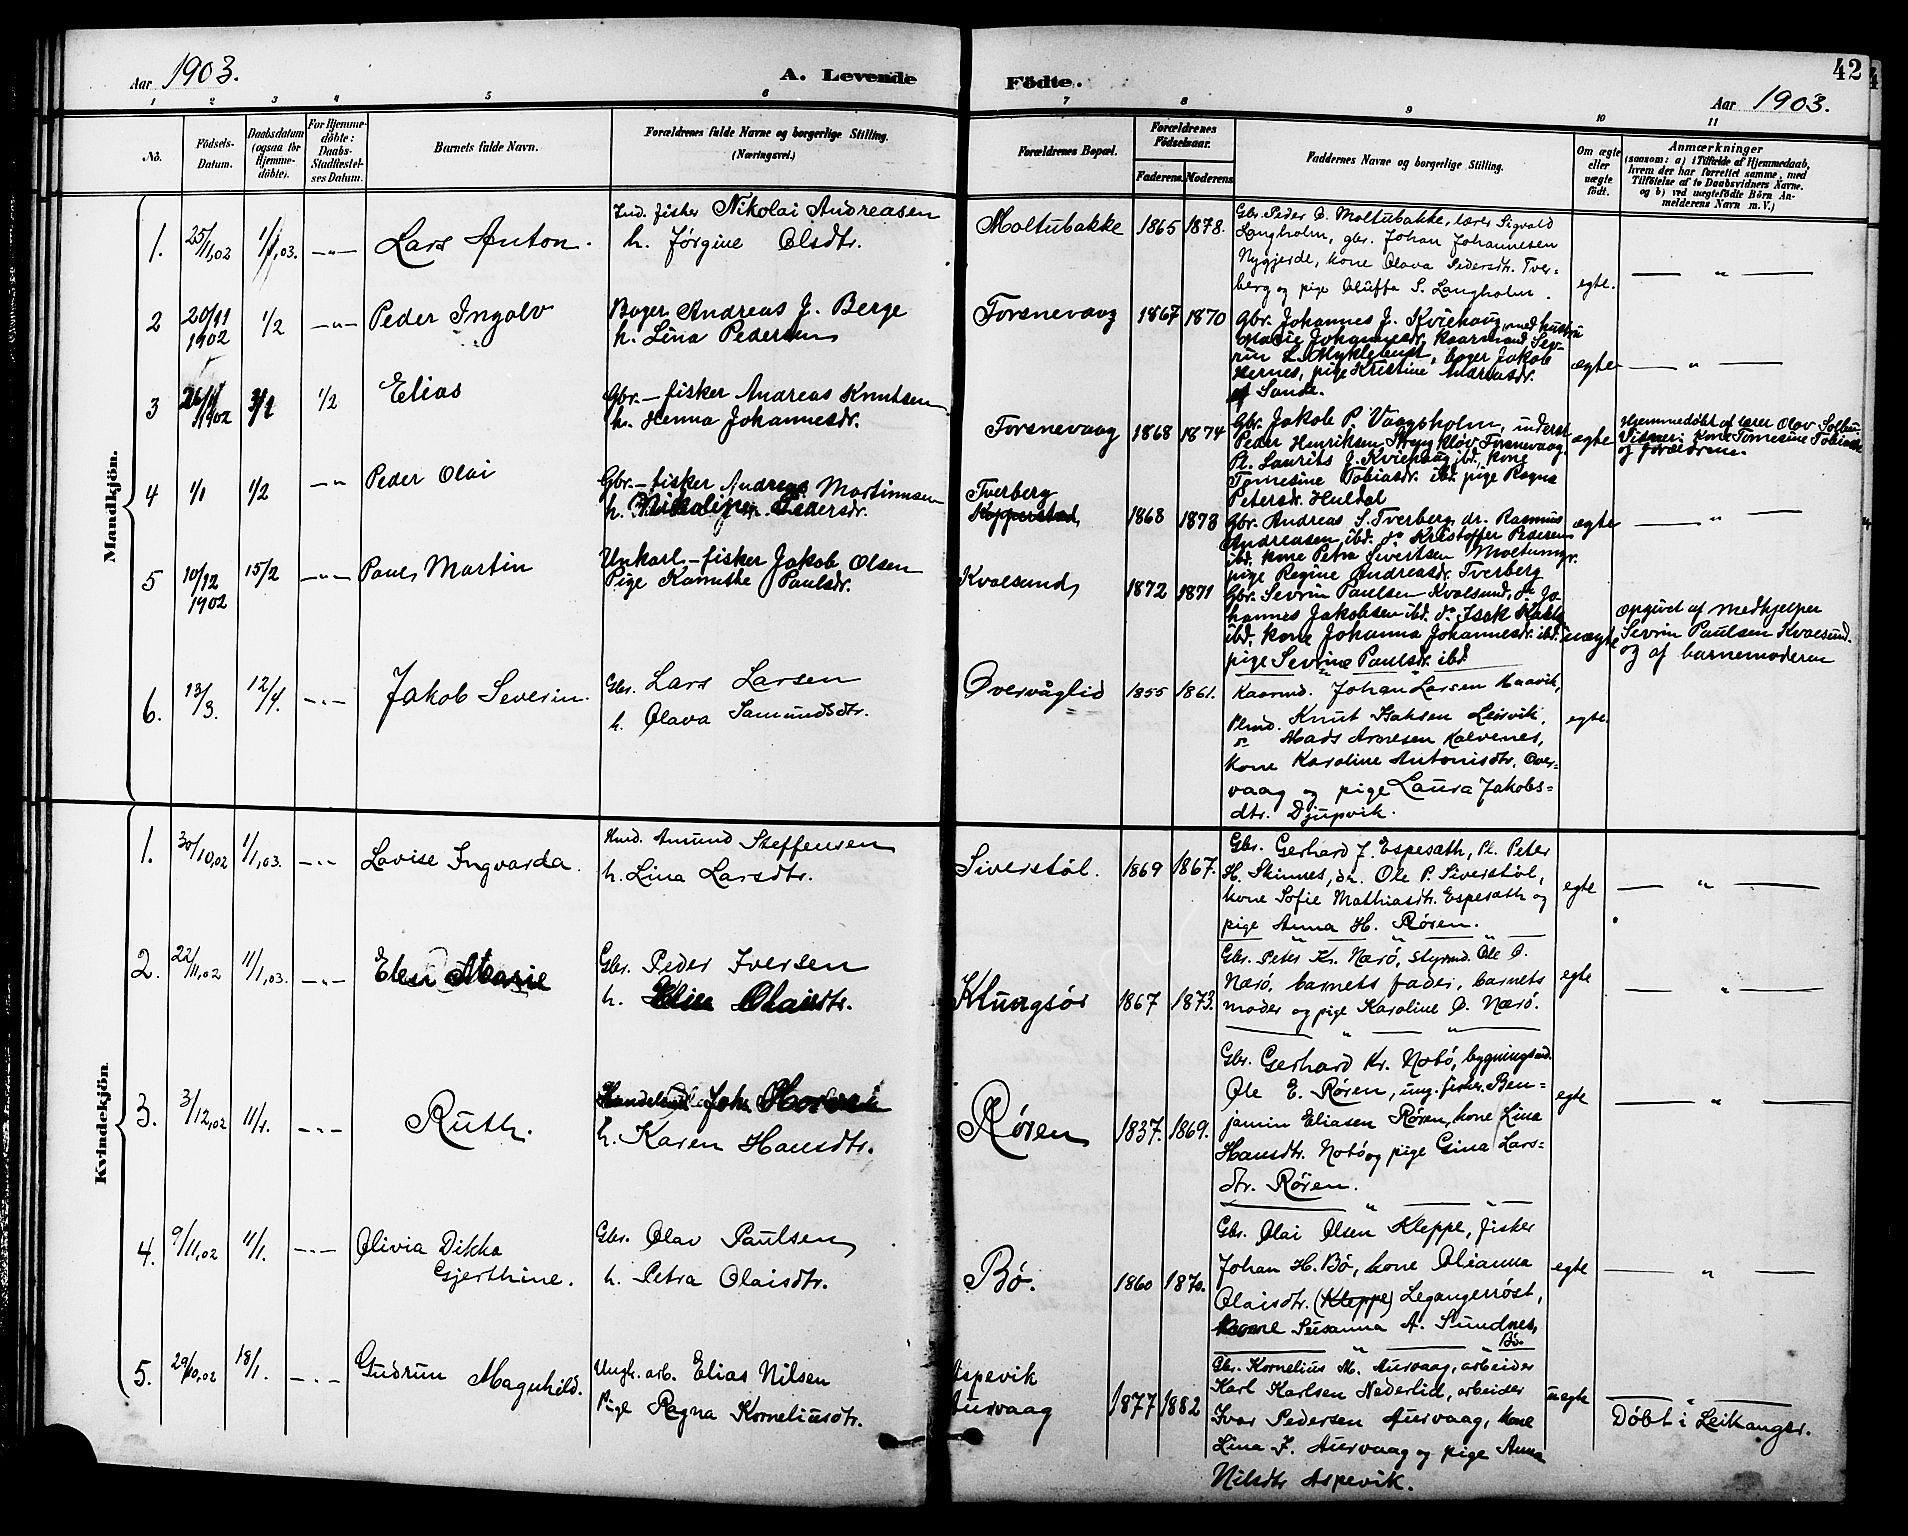 Aar 1903.
A. Levende
Födte.
42
Aar 1903.
1 2 3 4 5 6 7 8 9 10 11
No.
Födsels-Datum.
Daabsdatum (ogsaa for Hjemme-döbte).
For Hjemme-döbte: Daabs-Stadfestel-ses Datum.
Barnets fulde Navn.
Forældrenes fulde Navne og borgerlige Stilling.
(Næringsvei.)
Forældrenes Bopæl.
Forældrenes Födselsaar.
Faderens. Moderens.
Faddernes Navne og borgerlig Stilling.
Om ægte eller uægte födt.
Anmærkninger
(saasom: a) i Tilfælde af Hjemmedaab, hvem der har forrettet samme, med Tilföielse af to Daabsvidners Navne, og b) ved uægtefödte Börn An-melderens Navn m.V.)
Mandkjön.
1. 25/11,02 1/1,03. —"— Lars Anton.
Ind. fisker Nikolai Andreasen
h. Jørgine Olsdtr.
Moltubakke 1865 1878.
Gbr. Peder O. Moltubakke, lærer Sigvald
Langholm, gbr. Johan Johannesen
Nygjerde, kone Olava Pedersdtr. Tver-
berg og pige Oluffa S. Langholm.
egte. — " —
2 20/11 1902 1/2 —"— Peder Ingolv
Bager Andreas J. Berge
h. Lina Pedersen
Torsnevaag 1867 1870
Gbr. Johannes J. Kviehaug, med hustru
Marie Johannesdr, kaarmand Sev-
rin L. Myklebust, bager Jakob
Hernes, pige Kristine Andreasdr.
af Sande.
ægte — " —
3 26/11 1902 1/2 Elias
Gbr.— fisker Andreas Knutsen
h. Henna Johannesdr.
Torsnevaag 1868 1874
Gbr. Jakob P. Vaagsholm, inderst
Peder Henriksen Torsnevaag
Pl. Laurits J. Kviehaug ibd, kone
Tomesine Tobiasdr. ibd. pige Ragna
Petersdr. Huldal
ægte
Hjemmedöbt af lærer Olav Solbu
Vidner: kone Tomesine Tobiasdr
og forældrene.
4 1/1 1/2 —"— Peder Olai
Gbr.— fisker Andreas Martinusen
h. Nikoline Pedersdr.
Tverberg
Kopperstad 1868 1873
Gbr. Andreas S. Tverberg, dr. Rasmus
Andreasen ibd. do Kristoffer Pedersen
ibd. kone Petra Sivertsen Moltumyr.
pige Regine Andreasdr. Tverberg
ægte — " —
5 10/12 1902 15/2 —"— Paul Martin
Unkarl— fisker Jakob Olsen
Pige Kamithe Paulsdr.
Kvalsund, 1872 1871
Gbr. Sevrin Paulsen Kvalsund, do Jo-
hannes Jakobsen ibd. do Isak
ibd, kone Johanna Johannesdr. ibd.
pige Sevrine Paulsdr. ibd
uægte
opgivet af medhjelper
Sevrin Paulsen Kvalsund.
og af barnemoderen
6. 13/3. 12/4. —"— Jakob Severin.
Gbr. Lars Larsen
h. Olava Samundsdtr.
Overvåglid 1855 1861.
Kaarmd. Johan Larsen Haavik,
Plmd. Knut Isaksen Leirvik,
do. Mads Arnesen Kalvenes,
kone Karoline Antonisdtr. Over-
vaag og pige Laura Jakobs-
dtr. Djupvik.
egte.
Kvindekjön.
1. 30/10,02 1/1,03. —"— Lovise Ingvarda.
Amund Steffensen
h. Lina Larsdtr.
Siverstøl. 1869 1867.
Gbr. Gerhard J. Espesæth, Pl. Peter
H. Skinnes, do. Ole P. Siverstøl,
kone Sofie Mathiasdtr. Espesæth og
pige Anna H. Røren.
egte — " —
2. 22/11,02 11/1,03. —"— Elen Marie
Gbr. Peder Iversen
h. Elien Olaisdtr.
Klungsør 1867 1873.
Gbr. Peter Kr. Nærø, styrmd. Ole O.
Nærø, barnets fader, barnets
moder og pige Karoline O. Nærø.
egte — " —
3. 3/12,02 11/1. —"— Ruth.
Handelsmd. Joh.
h. Karen Hansdtr.
Røren 1837. 1869.
Gbr. Gerhard Kr. Notø, bygningsmd.
Ole E. Røren, ung. fisker Ben-
jamin Eliasen Røren, kone Lina
Hansdtr. Notø og pige Gina Lars-
dtr. Røren.
egte — " —
4. 9/11,02 11/1. —"— Olivia Dikka
Gjerthine.
Gbr. Olav Paulsen
h. Petra Olaisdtr.
Bø. 1860 1870.
Gbr. Olai Olsen Kleppe, fisker
Johan H. Bø, kone Olianna
Olaisdtr. (Kleppe) Legangerrøst,
kone Susanna A. Sundnes,
Bø.
egte — " —
5. 29/10,02 18/1. —"— Gudrun Magnhild.
Ungk. arb. Elias Nilsen
Pige Ragna Korneliusdtr.
Aspevik
Aurvaag 1877 1882
Gbr. Kornelius M. Aurvaag, arbeider
Karl Karlsen Nederlid, arbeider
Ivar Pedersen Aurvaag, kone
Lina J. Aurvaag og pige Anna
Nilsdtr Aspevik.
uegte
Døbt i Leikanger.